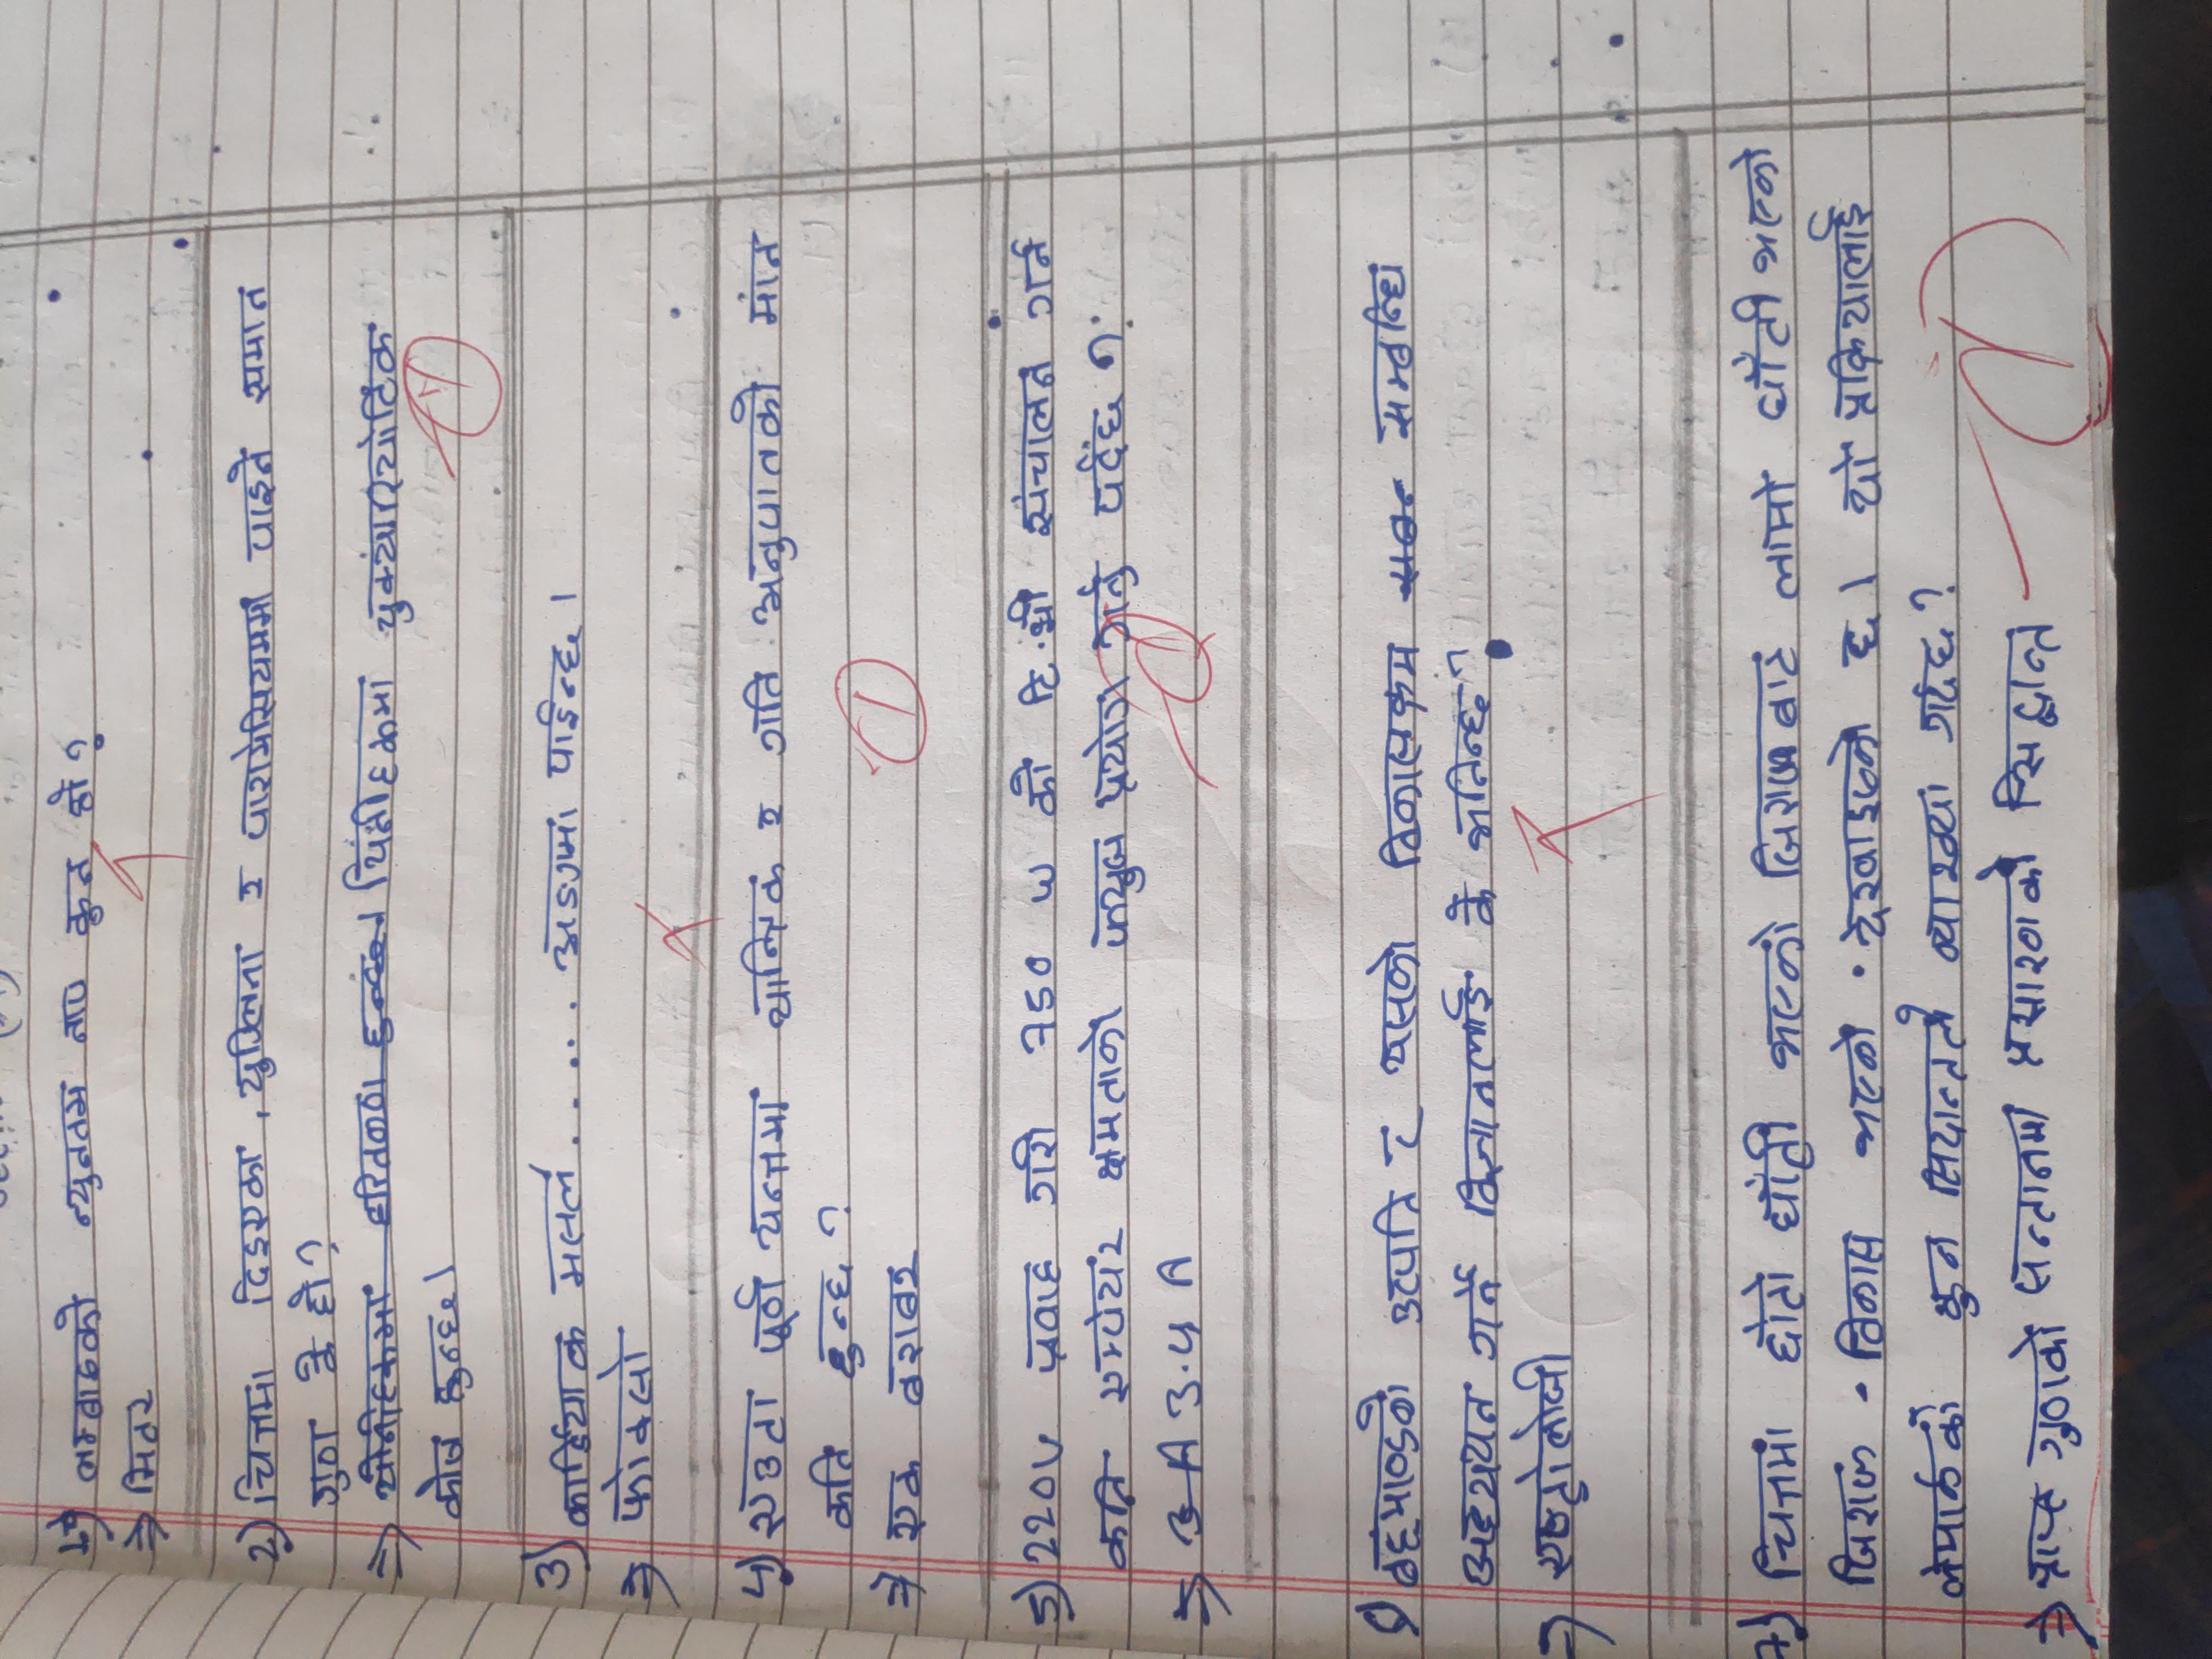 1) लम्बाइको न्युनतम नाप कुन हो ?
⇒ मिटर
2) चित्तमा दिइएका, युग्लिना र पारामेसियममा पाइने समान
गुण के हो ?
⇒ यीनीहरूमा हरितकण हुन्छ। यिनीहरूमा युक्यारियोटिक
कोष हुन्छ।
3) कार्डियाक मसल ..... अङगमा पाईन्छ ।
⇒ फोक्सो
४) एउटा पूर्ण यन्त्रमा यान्त्रिक र गति अनुपातको मान
कति हुन्छ ?
⇒ एक बराबर
1
5) 220V प्रवाह गरी 750 W को टि.भी संचालन गर्न
कति एम्पेयर क्षमताको फ्युज प्रयोग गर्नु पर्दछ ?
⇒ 3 A 3.५ A
1
६) बह्माण्डको उत्पति र यसको विकासक्रम सम्बन्धि
अध्ययन गर्ने विज्ञानलाई के भनिन्छ ?
⇒ एष्ट्रोलोजी
7) चित्तमा छोटो घाँटी भएको जिराफबाट लामो घाँटी भएको
जिराफ विकास भएको देखाइएको छ । यो प्रक्रियालाई
लेमार्कको कुन सिदान्तले व्याख्या गर्दछ ?
⇒ प्राप्त गुणको सन्तानमा प्रसारणको सिद्धान्त
1